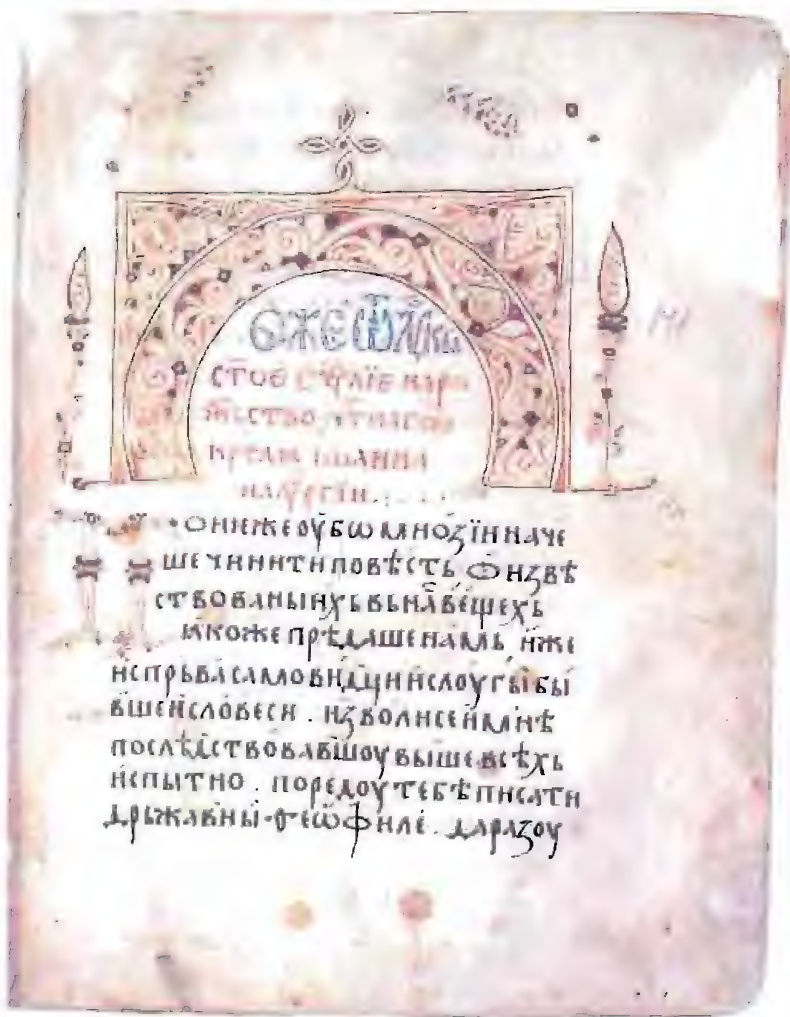 ѡже ѿ лꙋкы
ст҃ое еѵⷢлїе нар
жⷭьство
крⷭ҇тлѧ іѡанна
понеже оубѡ мноѕїи наче
ше чинити повѣсть ѡ извѣ
ствованыихь вь на҃ вещехь
ꙗкоже прѣдаше намь иже
испрьва самовидци и слоугы бы
вшеи словеси . изволисе и мнѣ
послѣдствовавшоу выше всѣхь
испытно . поредоу тебѣ писати
дрьжавны ѳеѡфиле . да разоу